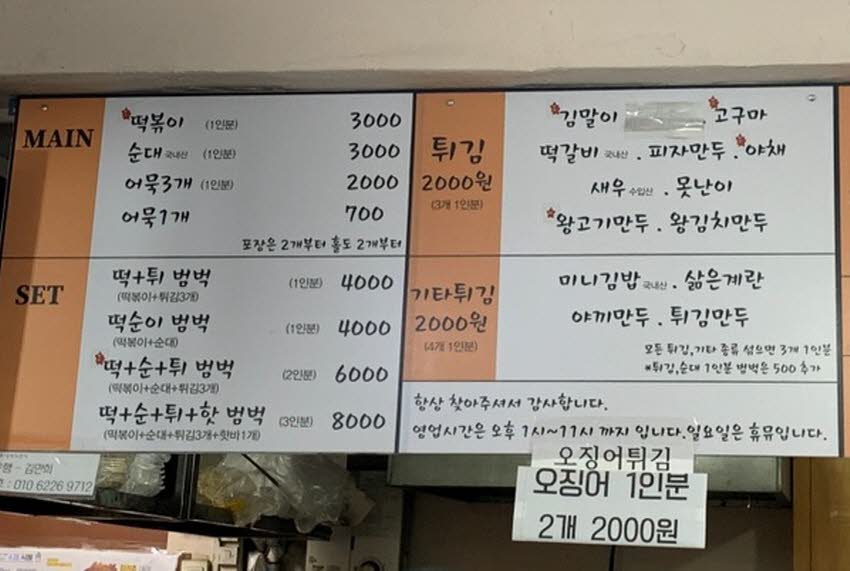 MAIN
떡볶이 (1인분) 3000
순대 국내산 (1인분) 3000
어묵3개 (1인분) 2000
어묵1개 700
포장은 2개부터 홀도 2개부터
SET
떡+튀 범벅 (1인분) 4000
(떡볶이+튀김3개)
떡순이 범벅 (1인분) 4000
(떡볶이+순대)
떡+순+튀 범벅 (2인분) 6000
(떡볶이+순대+튀김3개)
떡+순+튀+핫 범벅 (3인분) 8000
(떡볶이+순대+튀김3개+핫바1개)
튀김
2000원
(3개 1인분)
김말이 . 고구마
떡갈비 국내산 . 피자만두 . 야채
새우 수입산 . 못난이
왕고기만두 . 왕김치만두
기타튀김
2000원
(4개 1인분)
미니김밥 국내산 . 삶은계란
야끼만두 . 튀김만두
모든 튀김,기타 종류 섞으면 3개 1인분
*튀김,순대 1인분 범벅은 500 추가
항상 찾아주셔서 감사합니다.
영업시간은 오후 1시~11시 까지 입니다.일요일은 휴뮤입니다.
오징어튀김
오징어 1인분
2개 2000원
행 - 김만희
: 010 6226 9712